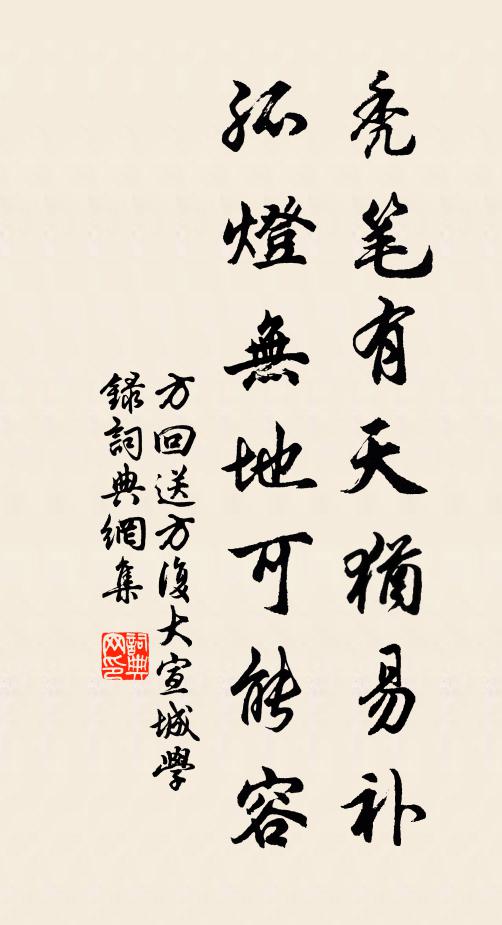 禿笔有天猶易补
孤燈無地可能容
方回送方復大宣城學
錄詞典網集
詞典網印